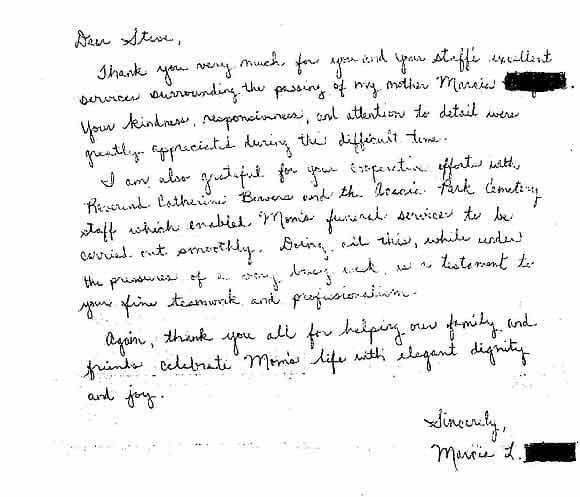 Dear Steve,
Thank you very much for you and your staff's excellent
services surrounding the passing of my mother Marcia
Your kindness, responsiveness, and attention to detail were
greatly appreciated during this difficult time.
I am also grateful for your cooperative efforts with
Reverend Catherine Bowers and the Acacia Park Cemetery
staff which enabled Mom's funeral services to be
carried out smoothly. Doing all this, while under
the pressures of a very busy week, is a testament to
your fine teamwork and professionalism.
Again, thank you all for helping our family and
friends celebrate Mom's life with elegant dignity
and joy.
Sincerely,
Marcia L.